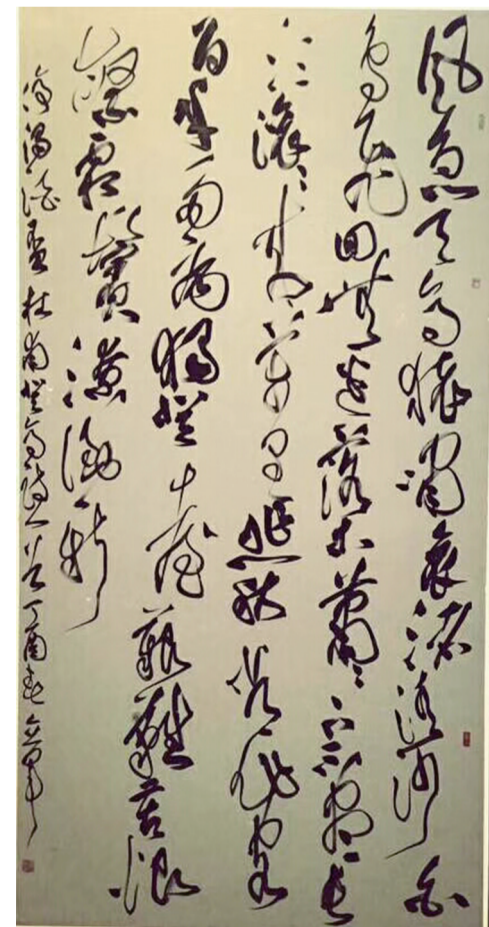 風急天高猿嘯哀渚清沙白
鳥飛回無邊落木蕭蕭下不盡長
江滾滾來萬里悲秋常作客
百年多病獨登臺艱難苦恨
繁霜鬢潦倒新
停濁酒杯 杜甫登高詩一首 丁酉春